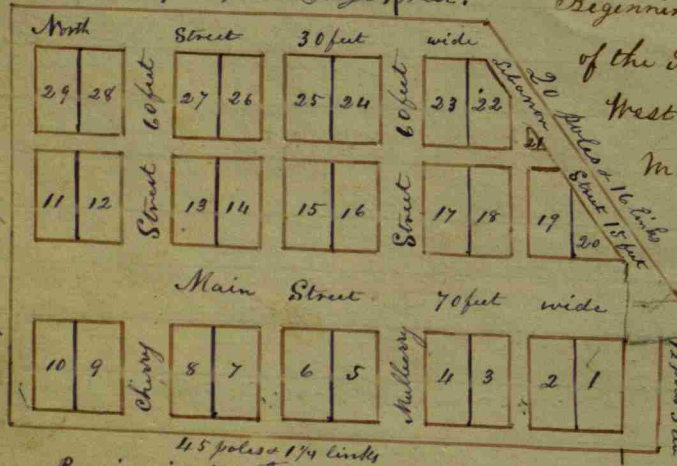 Beginnin
North Street 30 feet wide
of the
West
29 28 60 feet 27 26 25 24 60 feet 23 22
Lebanon Street 15 feet
20 poles & 16 links
21
11 12 Street 13 14 15 16 Street 17 18 19 20
Main Street 70 feet wide
10 9 Cherry 8 7 6 5 Mulberry 4 3 2 1
45 poles & 1¼ links